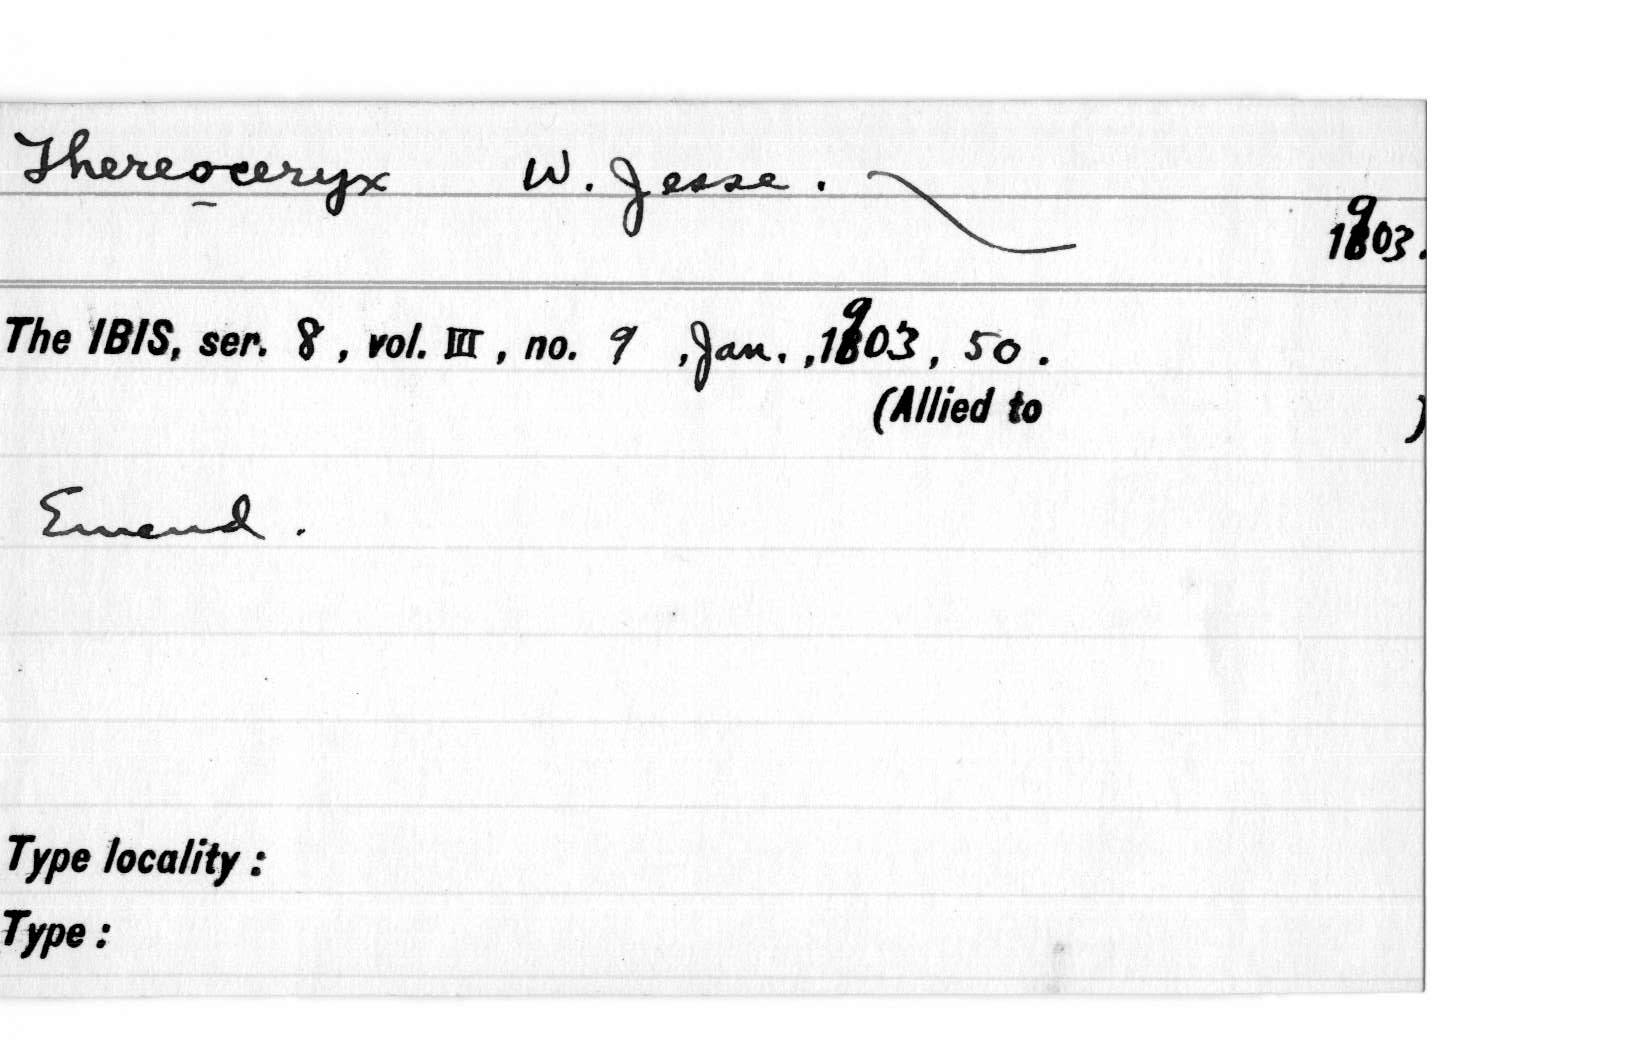 Thereoceryx W. Jesse.
1903.
The IBIS, ser. 8, vol. III, no. 9, Jan., 1903, 50.
(Allied to )
Emend.
Type locality:
Type: